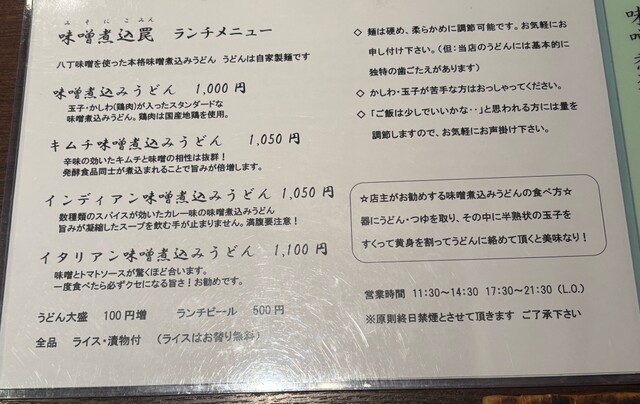 みそにこみん
味噌煮込罠 ランチメニュー
八丁味噌を使った本格味噌煮込みうどん うどんは自家製麺です
味噌煮込みうどん 1,000円
玉子・かしわ(鶏肉)が入ったスタンダードな
味噌煮込みうどん。鶏肉は国産地鶏を使用。
キムチ味噌煮込みうどん 1,050円
辛味の効いたキムチと味噌の相性は抜群！
発酵食品同士が煮込まれることで旨みが倍増します。
インディアン味噌煮込みうどん 1,050円
数種類のスパイスが効いたカレー味の味噌煮込みうどん
旨みが凝縮したスープを飲む手が止まりません。満腹要注意！
イタリアン味噌煮込みうどん 1,100円
味噌とトマトソースが驚くほど合います。
一度食べたら必ずクセになる旨さ！お勧めです。
うどん大盛 100円増 ランチビール 500円
全品 ライス・漬物付 (ライスはお替り無料)
◇ 麺は硬め、柔らかめに調節可能です。お気軽にお
申し付け下さい。(但：当店のうどんには基本的に
独特の歯ごたえがあります)
◇ かしわ・玉子が苦手な方はおっしゃってください。
◇ 「ご飯は少しでいいかな・・」と思われる方には量を
調節しますので、お気軽にお声掛け下さい。
☆店主がお勧めする味噌煮込みうどんの食べ方☆
器にうどん・つゆを取り、その中に半熟状の玉子を
すくって黄身を割ってうどんに絡めて頂くと美味なり！
営業時間 11:30～14:30 17:30～21:30 (L.O.)
※原則終日禁煙とさせて頂きます ご了承下さい